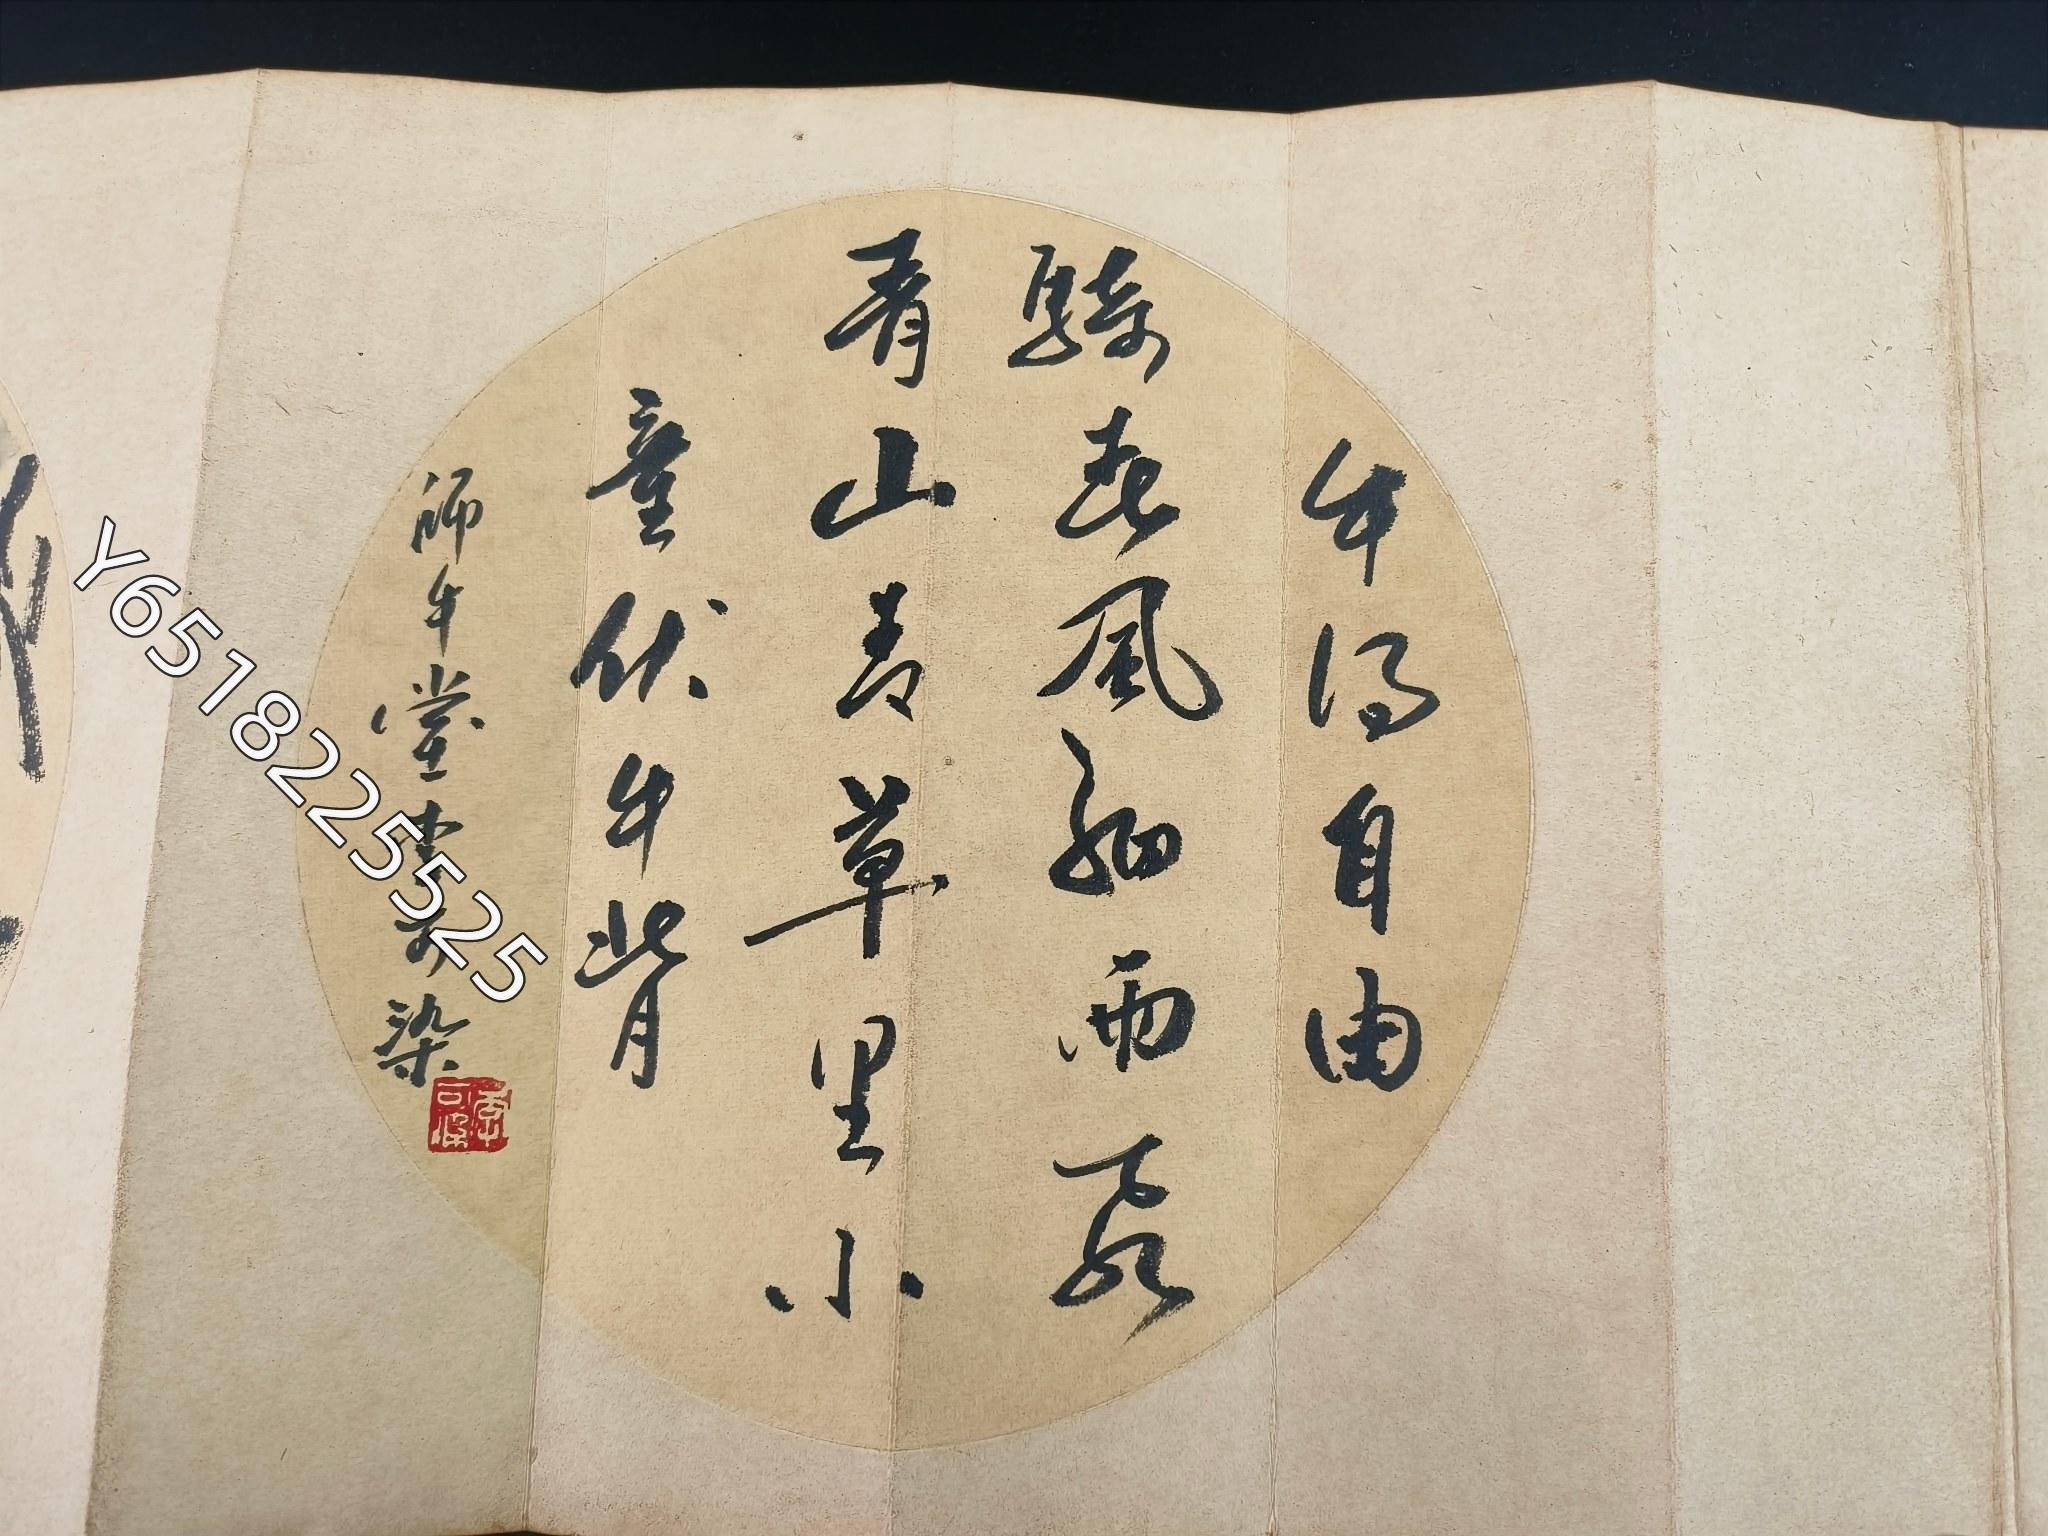 牛得自由
騎春風細雨飛
青山青草里小
童伏牛背
師牛堂李可染
李可染
Y6518225525